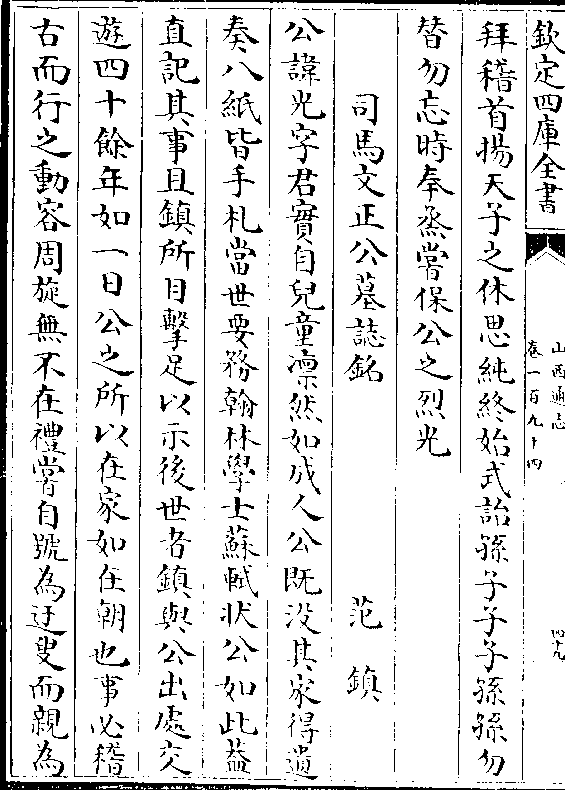 欽定四庫全書
山西通志
卷一百九十四
四十九
拜稽首揚天子之休思純終始式詒孫子子子孫孫勿
替勿忘時奉烝嘗保公之烈光
司馬文正公墓誌銘 范鎮
公諱光字君實自兒童凛然如成人公既没其家得遺
奏八紙皆手札當世要務翰林學士蘇軾狀公如此葢
直記其事且鎮所目擊足以示後世者鎮與公出處交
遊四十餘年如一日公之所以在家如在朝也事必稽
古而行之動容周旋無不在禮嘗自號為迂叟而親為